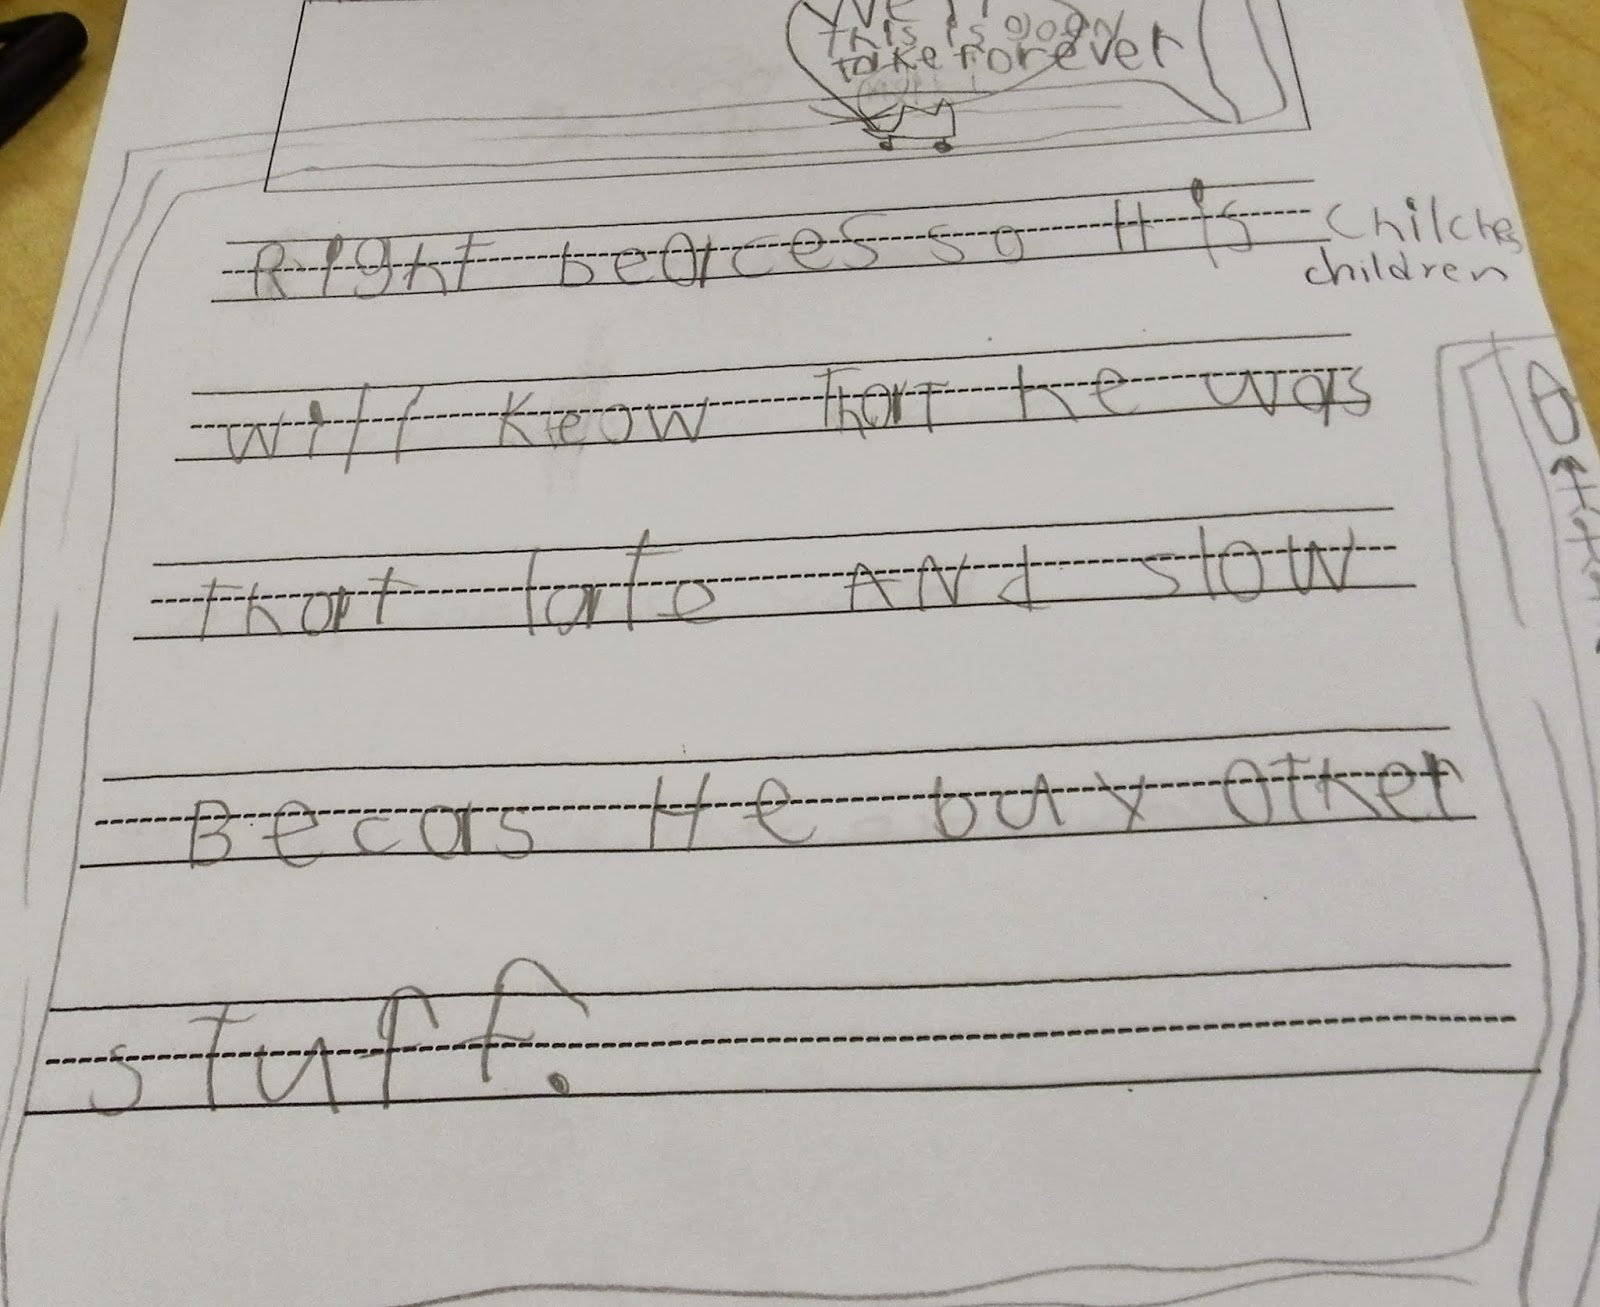 this is goan
take forever
Right bearces so it is Chilches
children
will keow that he was
that late ANd slow
Becas He bux Other
stuff.